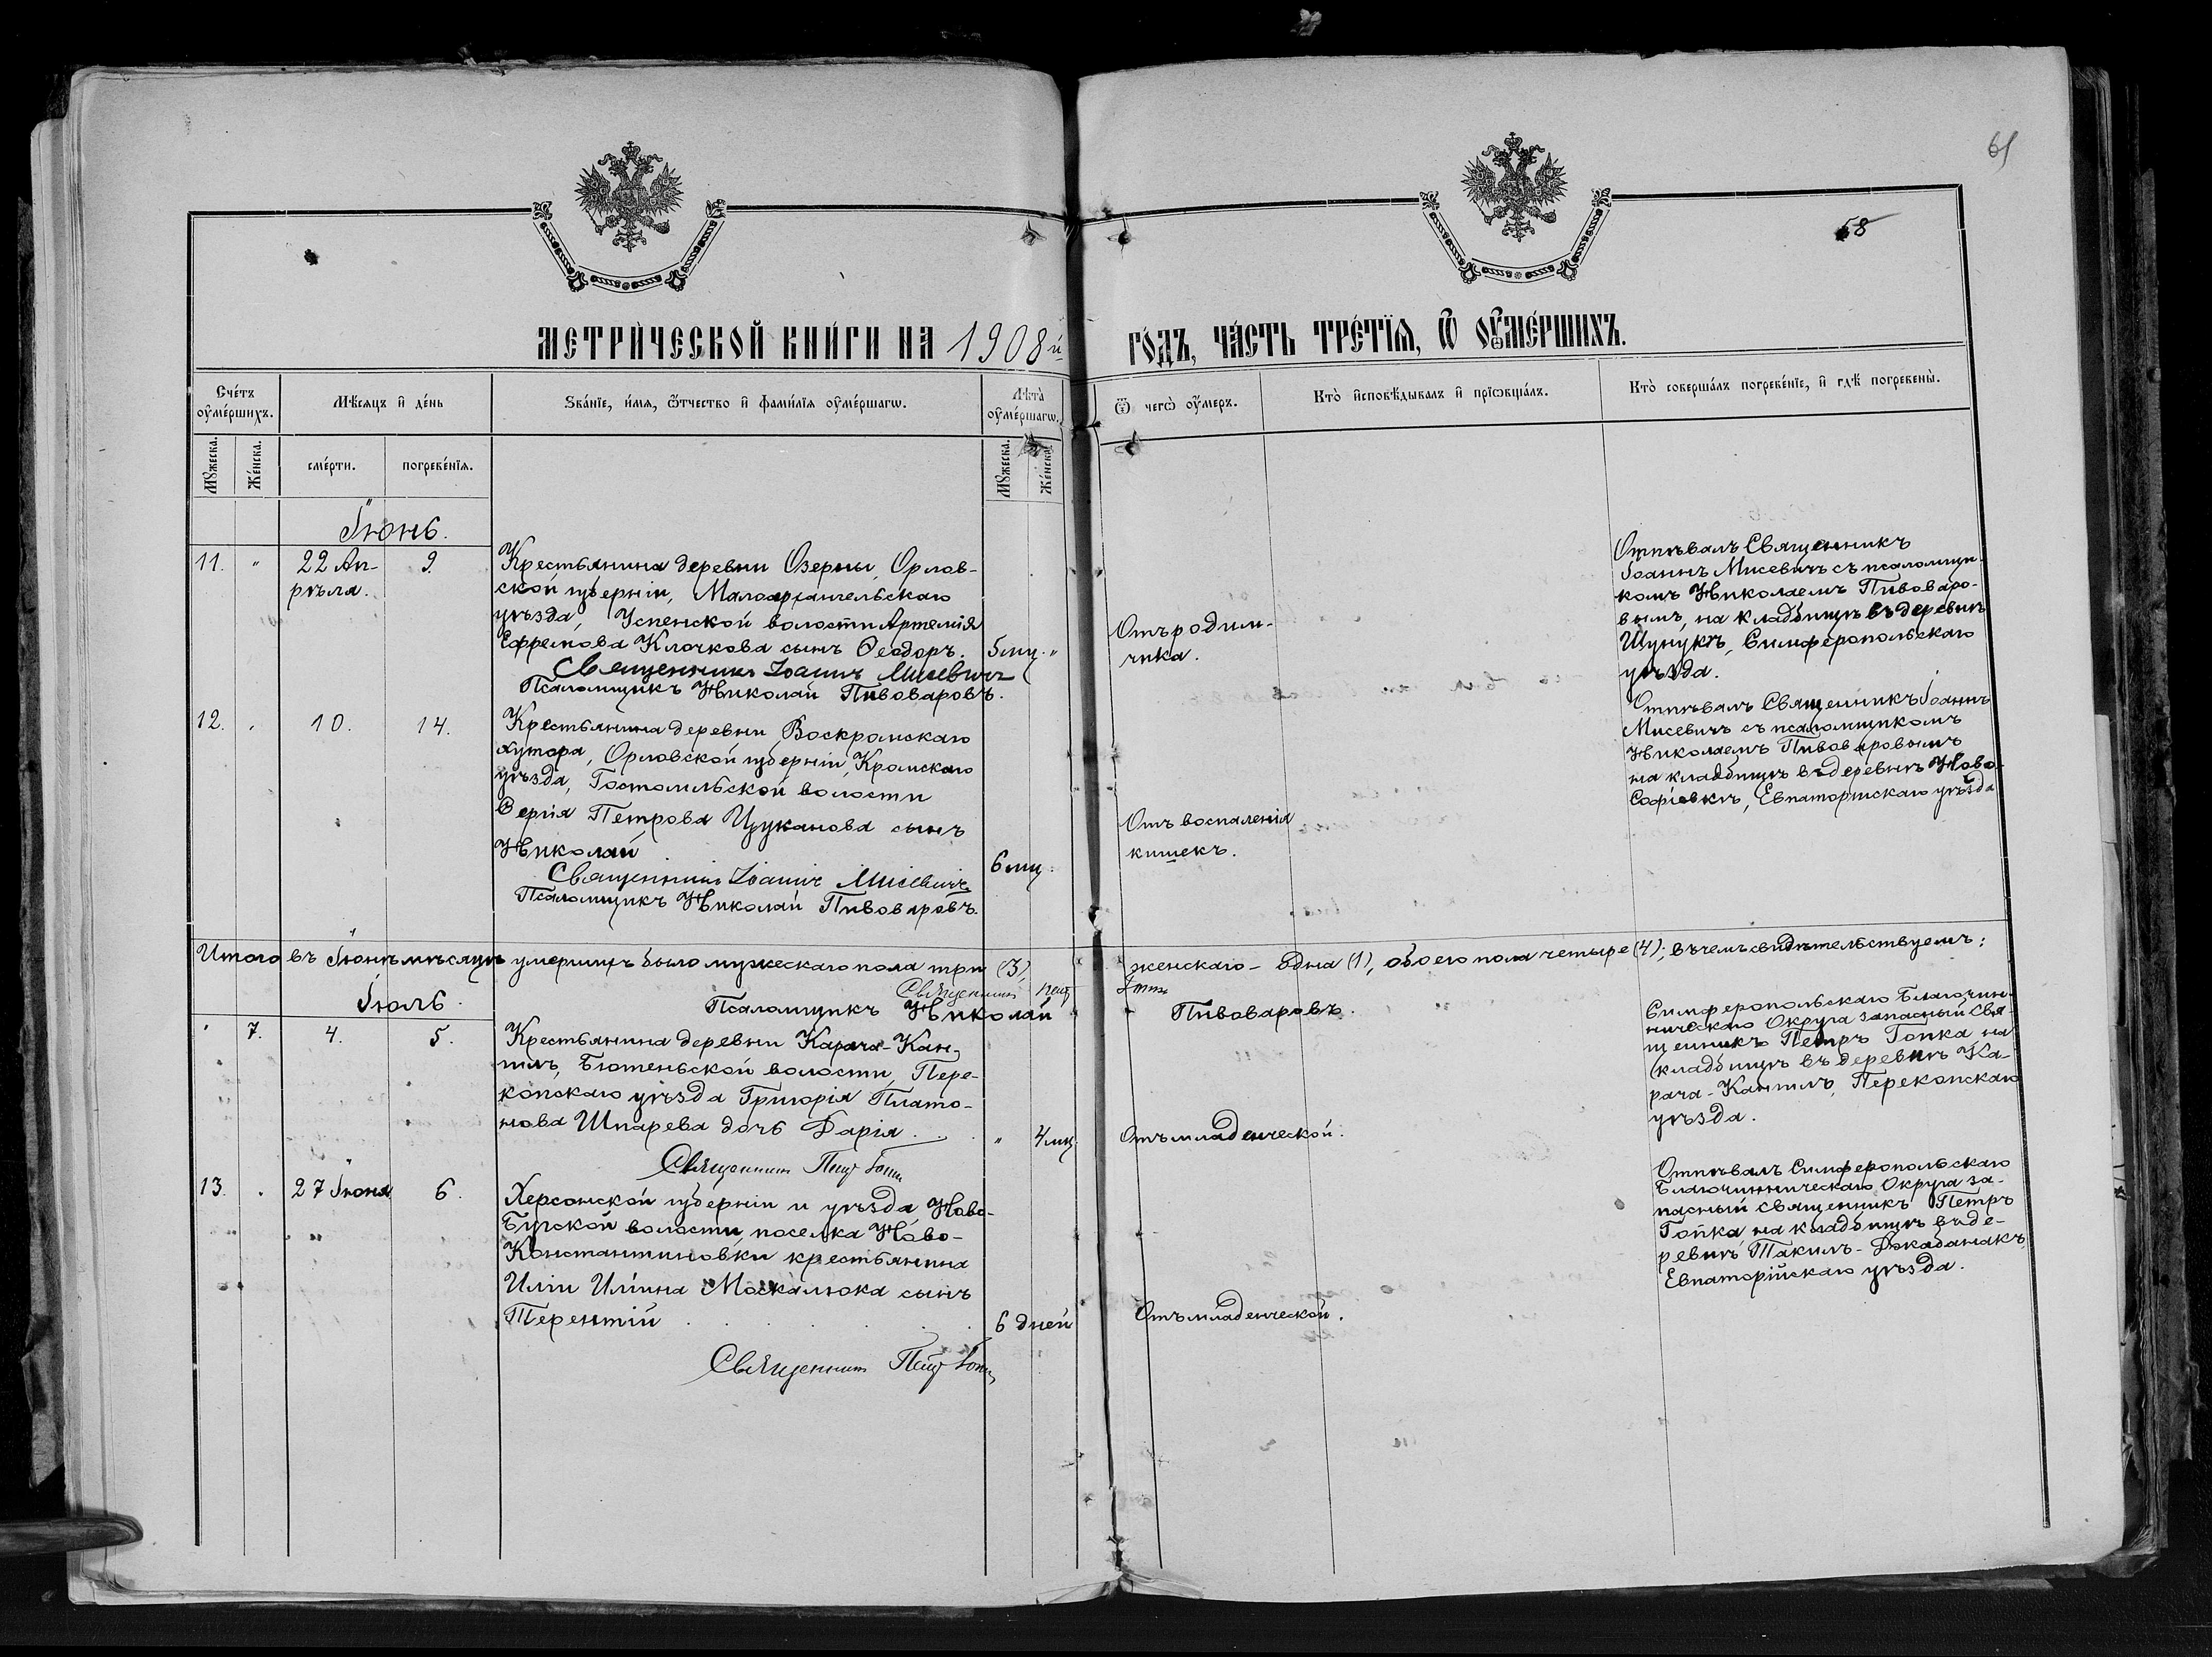 61
58
МЕТРИ́ЧЕСКОЙ КНИ́ГИ НА 1908 й
ГО́ДЪ, ЧА́СТЬ ТРЕ́ТЇѦ, Ѿ ОУ҆МЕ́РШИХЪ.
Сче́тъ оу҆ме́ршихъ.
Мѣсяцъ и де́нь
Зва́нїе, и́мѧ, ѻ҆́тчество и фами́лїѧ оу҆ме́ршагѡ.
Лѣта̀ оу҆ме́ршагѡ.
Ѿ чегѡ̀ оу҆́меръ.
Кто̀ и҆сповѣ́дывалъ и прїѡбща́лъ.
Кто̀ соверша́лъ погребе́нїе, и гдѣ̀ погребены̀.
Мꙋ́жеска.
Же́нска.
сме́рти.
погребе́нїѧ.
Мꙋ́жеска.
Же́нска.
Іюнь.
11. " 22 Ап-
рѣля.
9.
Крестьянина деревни Озерны, Орлов-
ской губерніи, Малоархангельскаго
уѣзда, Успенской волости Артемія
Ефремова Клочкова сынъ Ѳеодоръ.
5 мц. "
Священникъ Іоаннъ Мисевичъ
Псаломщикъ Николай Пивоваровъ.
Отъ родим-
чика.
Отпѣвалъ Священникъ
Іоаннъ Мисевичъ съ псаломщи-
комъ Николаемъ Пивоваро-
вымъ, на кладбищѣ въ деревнѣ
Шунукъ, Симферопольскаго
уѣзда.
12. . 10. 14.
Крестьянина деревни Воскромскаго
хутора, Орловской губерніи, Кромскаго
уѣзда, Гостомльской волости
Сергія Петрова Цуканова сынъ
Николай
6 мц.
Священникъ Іоаннъ Мисевичъ
Псаломщикъ Николай Пивоваровъ.
Отъ воспаленія
кишекъ.
Отпѣвалъ Священникъ Іоаннъ
Мисевичъ съ псаломщикомъ
Николаемъ Пивоваровымъ
на кладбищѣ въ деревнѣ Ново-
Софіевкѣ, Евпаторійскаго уѣзда
Итого въ Іюнѣ мѣсяцѣ умершихъ было мужескаго пола три (3), женскаго - одна (1), обоего пола четыре (4); въ чемъ свидѣтельствуемъ:
Священникъ Петр
Псаломщикъ Николай Пивоваровъ.
Іюль.
" 7. 4. 5.
Крестьянина деревни Карача-Кан-
гилъ, Бютеньской волости, Пере-
копскаго уѣзда Григорія Плато-
нова Шпарева дочь Дарія . . .
" 4 мц.
Священник Петр Гопка
Отъ младенческой.
Симферопольскаго Благочин-
ническаго Округа запасный Свя-
щенникъ Петръ Гопка на
кладбищѣ въ деревнѣ Ка-
рача-Кангилъ, Перекопскаго
уѣзда.
13. . 27 Іюня 6.
Херсонской губерніи и уѣзда Ново-
Бугской волости, поселка Ново-
Константиновки крестьянина
Иліи Ильина Москалюка сынъ
Терентій . . . . .
6 дней
Священник Петр Гопка
Отъ младенческой.
Отпѣвалъ Симферопольскаго
Благочинническаго Округа за-
пасный священникъ Петръ
Гопка, на кладбищѣ въ де-
ревнѣ Такилъ-Джабанакъ,
Евпаторійскаго уѣзда.